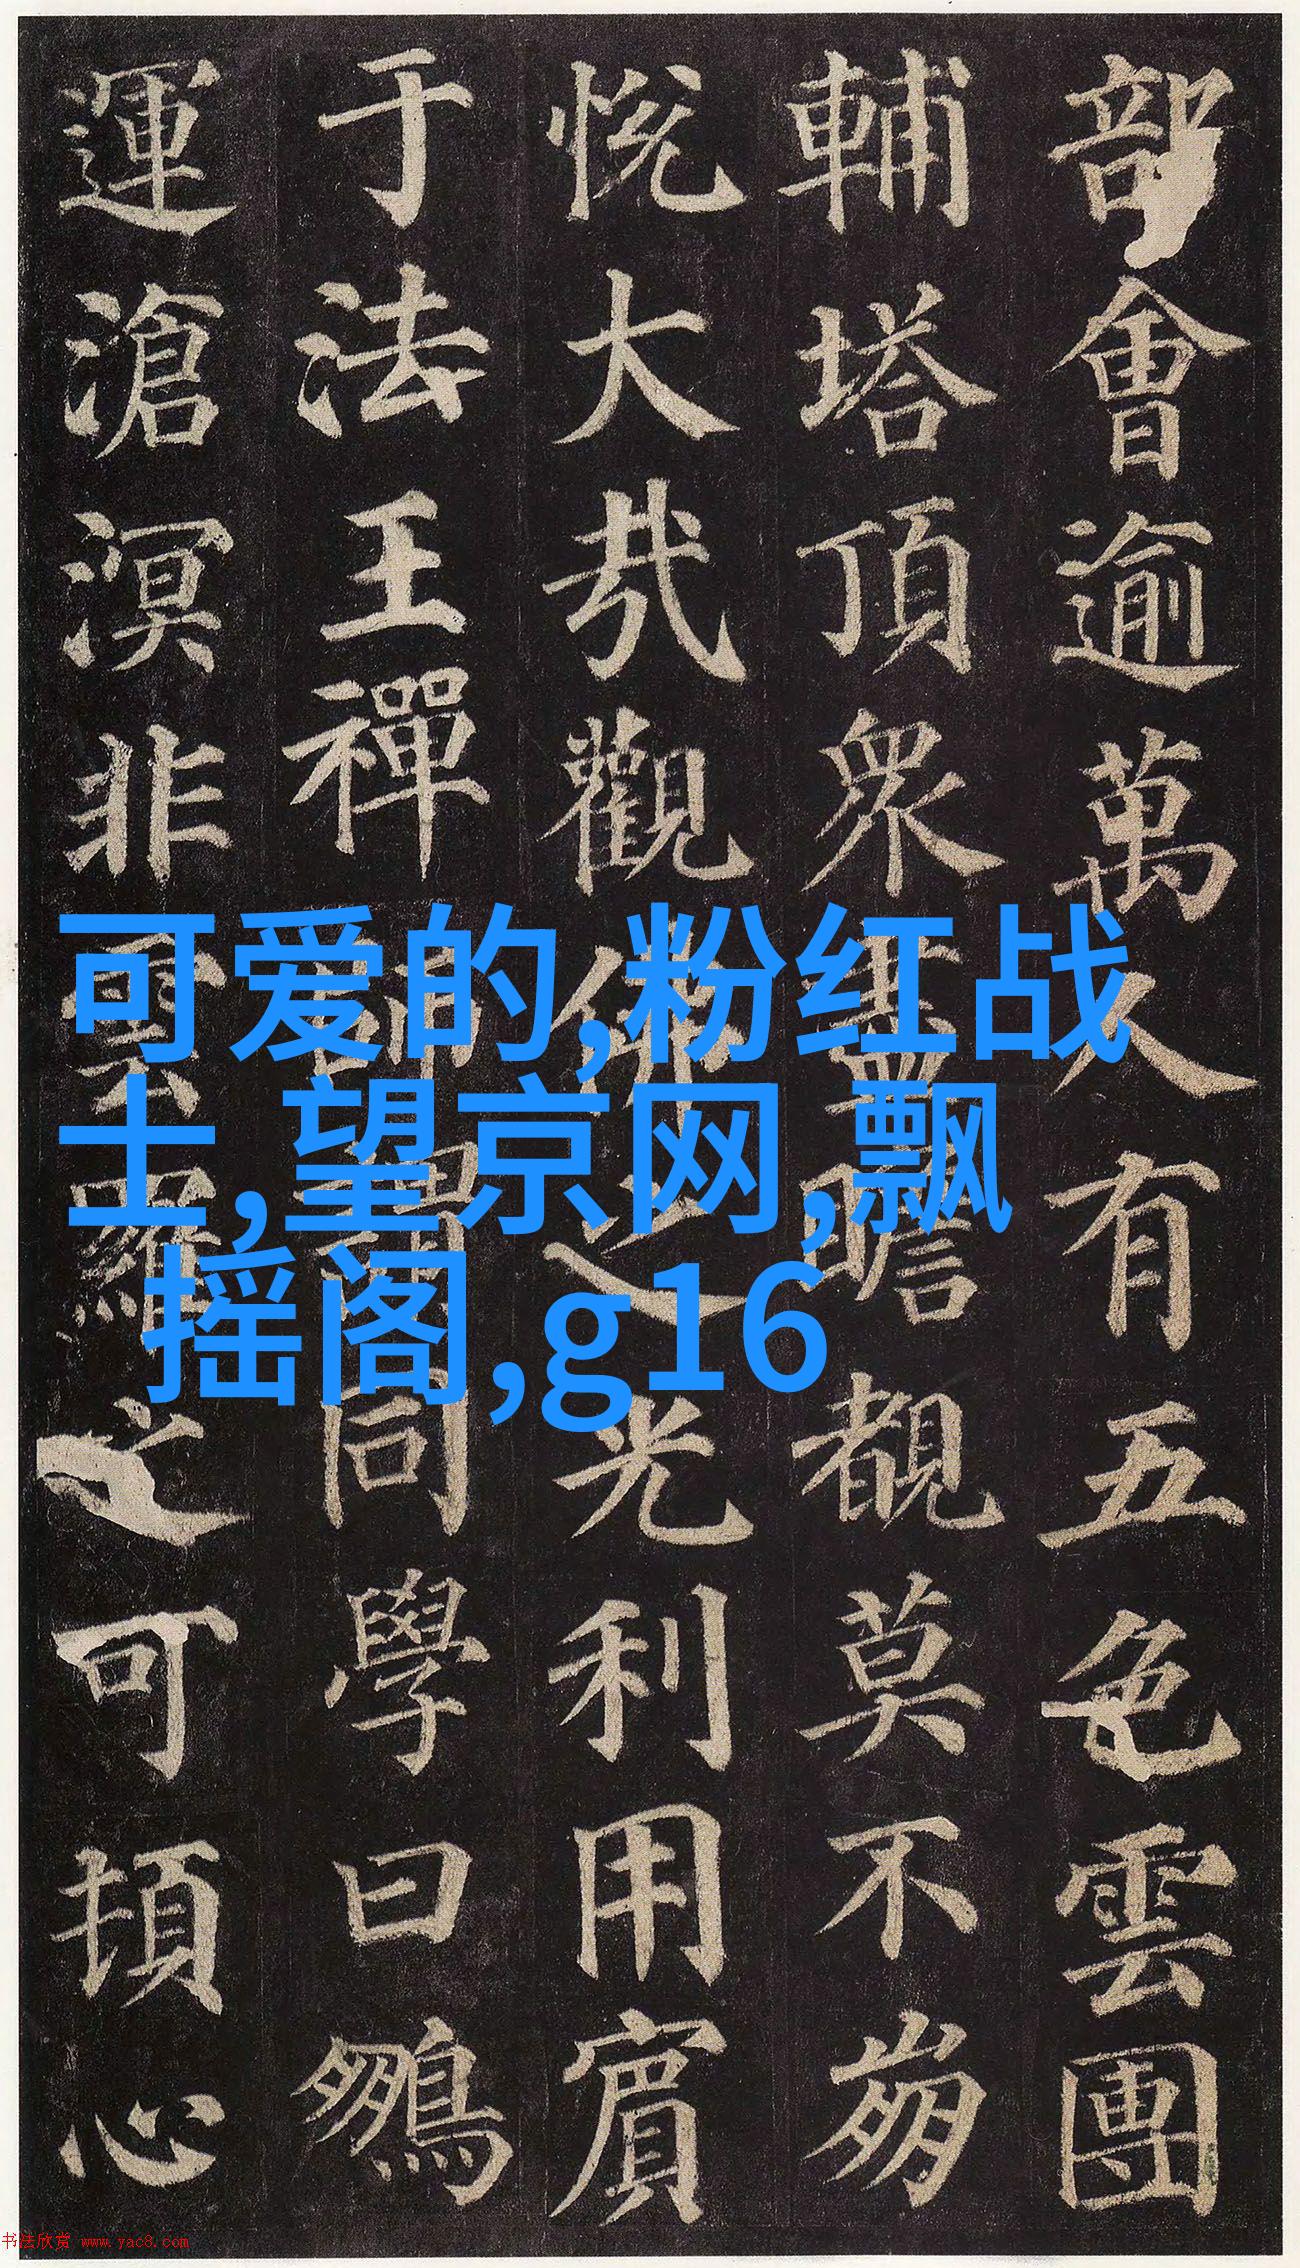 部會逾萬人有五色雲團
輔塔頂衆盡瞻覩莫不崩
悅大哉觀佛之光利用賓
于法王禪師謂同學曰鵬
運滄溟非雲羅之可頓心
可爱的,粉红战
士,望京网,飘
摇阁,g16
书法欣赏 www.yac8.com